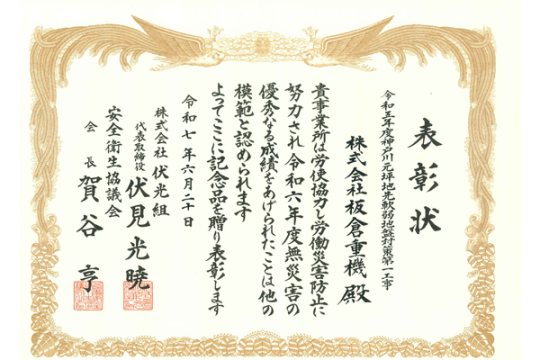 表彰状
令和五年度神戸川元坪地先軟弱地盤対策第一工事
株式会社板倉重機殿
貴事業所は労使協力し労働災害防止に
努力され令和六年度無災害の
優秀なる成績をあげられたことは他の
模範と認められます
よってここに記念品を贈り表彰します
令和七年六月二十日
株式会社伏光組
代表取締役伏見光暁
安全衛生協議会
会長賀谷亨